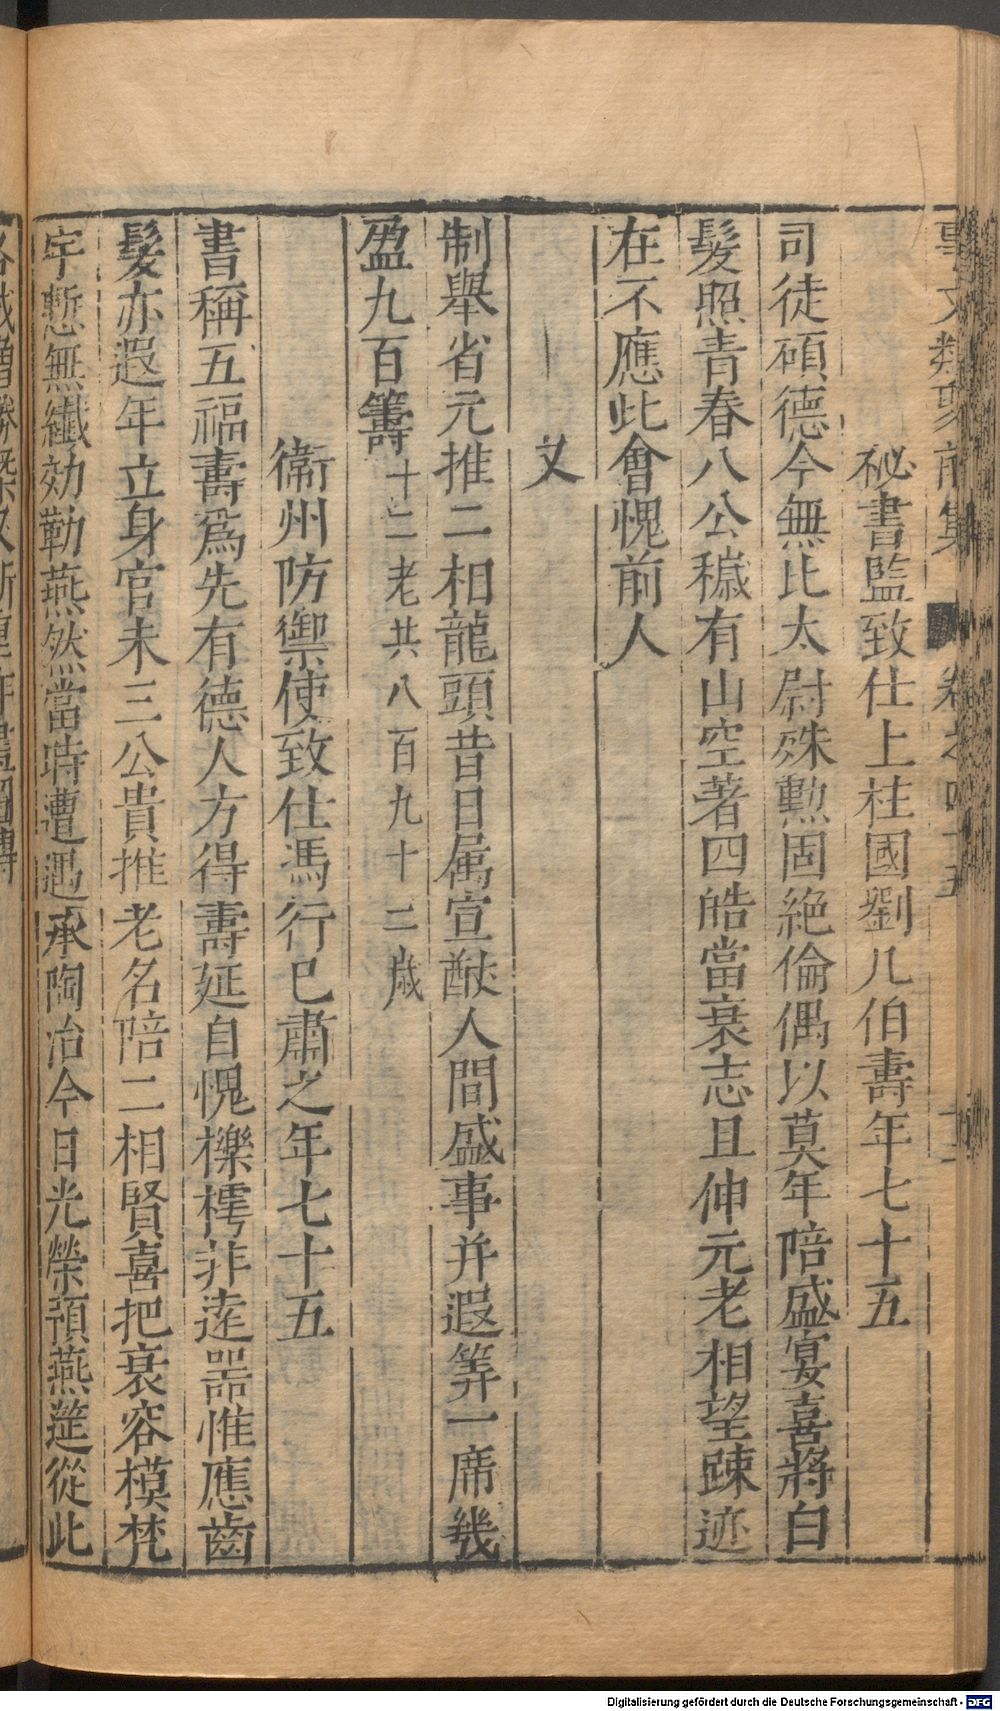 事文類聚前集 卷之四十五
祕書監致仕上柱國劉几伯壽年七十五
司徒碩德今無比太尉殊勲固絶倫偶以莫年陪盛宴喜將白
髮照青春八公穢有山空著四皓當衰志且伸元老相望踈迹
在不應此會愧前人
又
制舉省元推二相龍頭昔日属宣猷人間盛事并遐筭一席幾
盈九百籌十二老共八百九十二歲
衞州防禦使致仕馮行已肅之年七十五
書稱五福壽爲先有德人方得壽延自愧櫟樗非逺噐惟應齒
髮亦遐年立身官未三公貴推老名陪二相賢喜把衰容模梵
宇慙無纖効勒燕然當時遭遇承陶冶今日光榮預燕莚從此
Digitalisierung gefördert durch die Deutsche Forschungsgemeinschaft - DFG